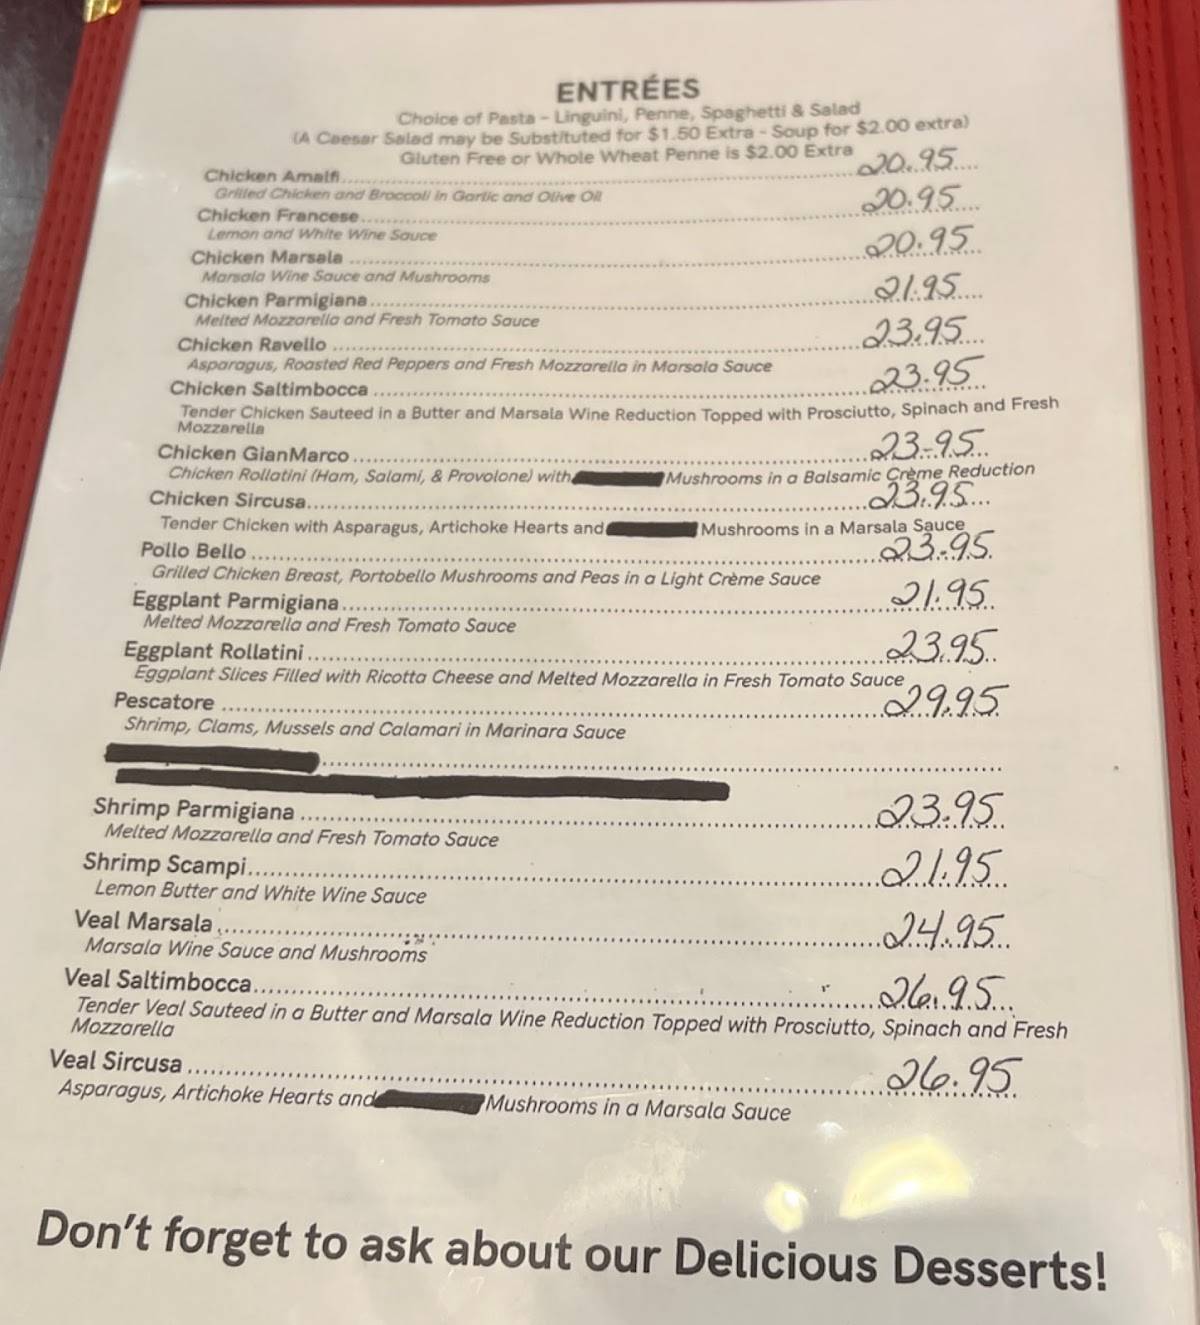 ENTRÉES
Choice of Pasta - Linguini, Penne, Spaghetti & Salad
(A Caesar Salad may be Substituted for $1.50 Extra - Soup for $2.00 extra)
Gluten Free or Whole Wheat Penne is $2.00 Extra
Chicken Amalfi 20.95
Grilled Chicken and Broccoli in Garlic and Olive Oil
Chicken Francese 20.95
Lemon and White Wine Sauce
Chicken Marsala 20.95
Marsala Wine Sauce and Mushrooms
Chicken Parmigiana 21.95
Melted Mozzarella and Fresh Tomato Sauce
Chicken Ravello 23.95
Asparagus, Roasted Red Peppers and Fresh Mozzarella in Marsala Sauce
Chicken Saltimbocca 23.95
Tender Chicken Sauteed in a Butter and Marsala Wine Reduction Topped with Prosciutto, Spinach and Fresh
Mozzarella
Chicken GianMarco 23.95
Chicken Rollatini (Ham, Salami, & Provolone) with Mushrooms in a Balsamic Crème Reduction
Chicken Sircusa 23.95
Tender Chicken with Asparagus, Artichoke Hearts and Mushrooms in a Marsala Sauce
Pollo Bello 23.95
Grilled Chicken Breast, Portobello Mushrooms and Peas in a Light Crème Sauce
Eggplant Parmigiana 21.95
Melted Mozzarella and Fresh Tomato Sauce
Eggplant Rollatini 23.95
Eggplant Slices Filled with Ricotta Cheese and Melted Mozzarella in Fresh Tomato Sauce
Pescatore 29.95
Shrimp, Clams, Mussels and Calamari in Marinara Sauce
Shrimp Parmigiana 23.95
Melted Mozzarella and Fresh Tomato Sauce
Shrimp Scampi 21.95
Lemon Butter and White Wine Sauce
Veal Marsala 24.95
Marsala Wine Sauce and Mushrooms
Veal Saltimbocca 26.95
Tender Veal Sauteed in a Butter and Marsala Wine Reduction Topped with Prosciutto, Spinach and Fresh
Mozzarella
Veal Sircusa 26.95
Asparagus, Artichoke Hearts and Mushrooms in a Marsala Sauce
Don't forget to ask about our Delicious Desserts!